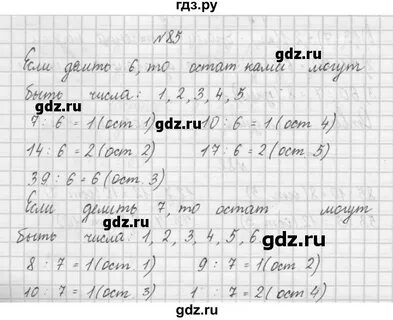 гдз.ру
№85
gdz.ru
Если делить 6, то остатками могут
быть числа: 1, 2, 3, 4, 5
gdz.ru
7 : 6 = 1 (ост. 1) 10 : 6 = 1 (ост. 4)
14 : 6 = 2 (ост. 2) 17 : 6 = 2 (ост. 5)
39 : 6 = 6 (ост. 3)
gdz.ru
Если делить 7, то остат могут
быть числа: 1, 2, 3, 4, 5, 6
gdz.ru
8 : 7 = 1 (ост. 1) 9 : 7 = 1 (ост 2)
10 : 7 = 1 (ост. 3) 1 : 7 = 2 (ост 4)
gdz.ru